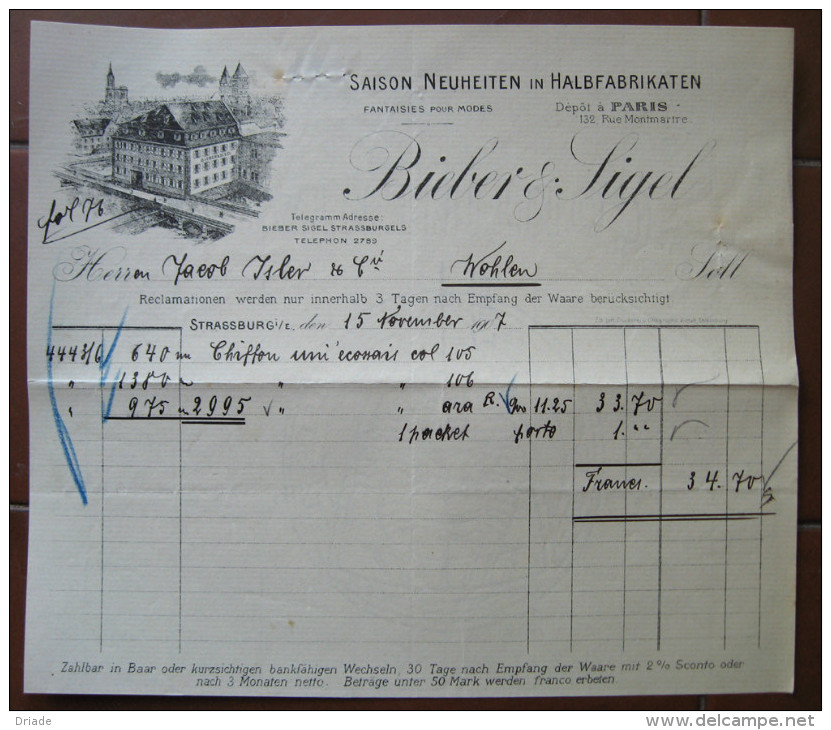 SAISON NEUHEITEN IN HALBFABRIKATEN
FANTAISIES POUR MODES
Dépôt à PARIS
132, Rue Montmartre.
Bieber & Sigel
fol 76
Telegramm Adresse:
BIEBER SIGEL STRASSBURGELS
TELEPHON 2789
Herren Jacob Isler & Cie Wohlen Soll
Reclamationen werden nur innerhalb 3 Tagen nach Empfang der Waare berücksichtigt
STRASSBURG i/E, den 15 November 1907
4443/6 640 m Chiffon uni écossais col 105
" 1380 m " " 106
" 975 m 2995 " " ara R. 11.25 33.70
1 packet porto 1."
Francs. 34.70
Zahlbar in Baar oder kurzsichtigen bankfähigen Wechseln, 30 Tage nach Empfang der Waare mit 2% Sconto oder
nach 3 Monaten netto. Beträge unter 50 Mark werden franco erbeten.
Driade
www.delcampe.net